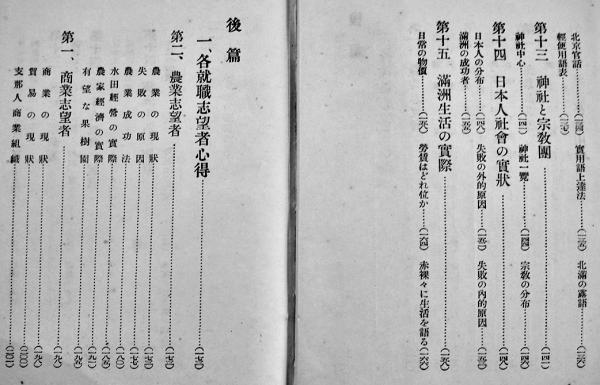 北京官話……(一三四) 實用語上達法……(一三五) 北滿の露語……(一三六)
輕便用語表……(一三七)
第十三 神社と宗教團……(一四一)
神社中心……(一四一) 神社一覽……(一四四) 宗教の分布……(一四四)
第十四 日本人社會の實狀……(一四八)
日本人の分布……(一四八) 失敗の外的原因……(一五〇) 失敗の內的原因……(一五〇)
滿洲の成功者
第十五 滿洲生活の實際……(一五八)
日常の物價……(一五八) 勞賃はどれ位か……(一六四) 赤裸々に生活を語る……(一六六)
後篇
一、各就職志望者心得
第二、農業志望者
農業の現狀
失敗の原因
農業成功法
水田經營の實際
農家經濟の實際
有望な果樹園
第一、商業志望者
商業の現狀
貿易の現狀
支那人商業組織